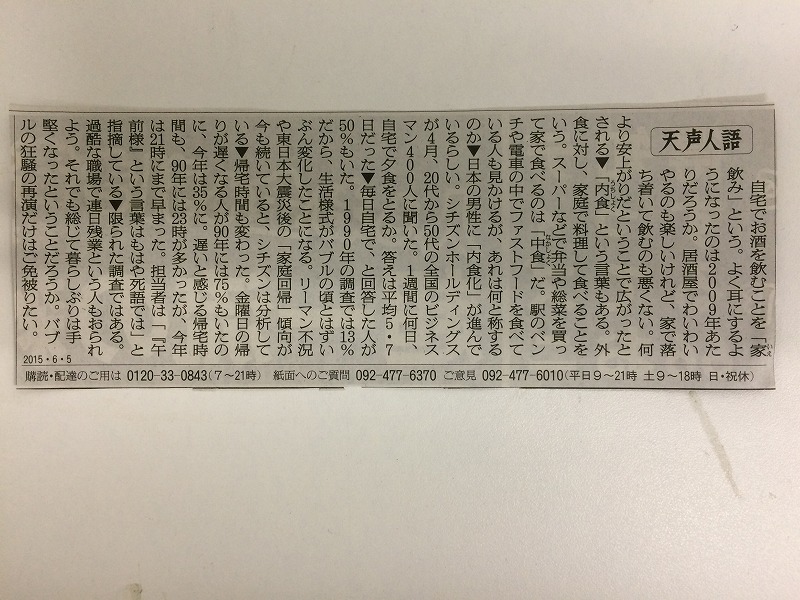 天声人語
自宅でお酒を飲むことを「家
飲み」という。よく耳にするよ
うになったのは2009年あた
りだろうか。居酒屋でわいわい
やるのも楽しいけれど、家で落
ち着いて飲むのも悪くない。何
より安上がりだということで広がったと
される▼「内食」という言葉もある。外
食に対し、家庭で料理して食べることを
いう。スーパーなどで弁当や総菜を買っ
て家で食べるのは「中食」だ。駅のベン
チや電車の中でファストフードを食べて
いる人も見かけるが、あれは何と称する
のか▼日本の男性に「内食化」が進んで
いるらしい。シチズンホールディングス
が4月、20代から50代の全国のビジネス
マン400人に聞いた。1週間に何日、
自宅で夕食をとるか。答えは平均5・7
日だった▼毎日自宅で、と回答した人が
50%もいた。1990年の調査では13%
だから、生活様式がバブルの頃とはずい
ぶん変化したことになる。リーマン不況
や東日本大震災後の「家庭回帰」傾向が
今も続いていると、シチズンは分析して
いる▼帰宅時間も変わった。金曜日の帰
りが遅くなる人が90年には75%もいたの
に、今年は35%に。遅いと感じる帰宅時
間も、90年には23時が多かったが、今年
は21時にまで早まった。担当者は「『午
前様』という言葉はもはや死語では」と
指摘している▼限られた調査ではある。
過酷な職場で連日残業という人もおられ
よう。それでも総じて暮らしぶりは手
堅くなったということだろうか。バブ
ルの狂騒の再演だけはご免被りたい。
2015・6・5
購読・配達のご用は 0120-33-0843(7～21時) 紙面へのご質問 092-477-6370 ご意見 092-477-6010(平日9～21時 土9～18時 日・祝休)